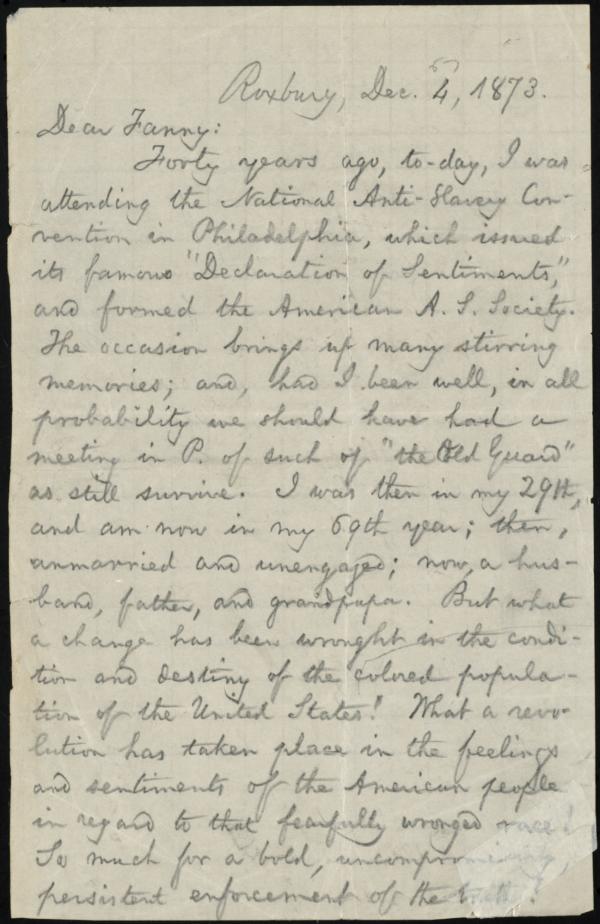 Roxbury, Dec. 4, 1873.
Dear Fanny:
Forty years ago, to-day, I was
attending the National Anti-Slavery Con-
vention in Philadelphia, which issued
its famous "Declaration of Sentiments,"
and formed the American A. S. Society.
The occasion brings up many stirring
memories; and, had I been well, in all
probability we should have had a
meeting in P. of such of "the Old Guard"
as still survive. I was then in my 29th,
and am now in my 69th year; then,
unmarried and unengaged; now, a hus-
band, father, and grandpapa. But what
a change has been wrought in the condi-
tion and destiny of the colored popula-
tion of the United States! What a revo-
lution has taken place in the feelings
and sentiments of the American people
in regard to that fearfully wronged race!
So much for a bold, uncompromising,
persistent enforcement of the truth!